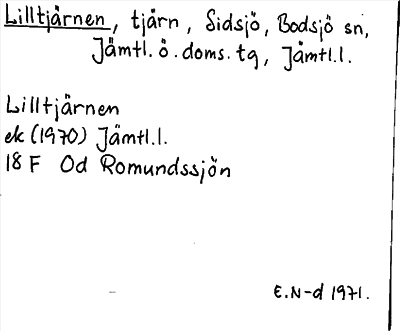 Lilltjärnen, tjärn, Sidsjö, Bodsjö sn,
Jämtl. ö. doms. tg, Jämtl.l.
Lilltjärnen
ek (1970) Jämtl.l.
18 F Od Romundssjön
E.N-d 1971.